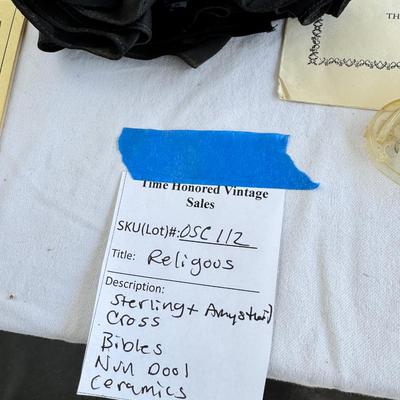 TH
Time Honored Vintage
Sales
SKU(Lot)#: OSC112
Title: Religous
Description:
Sterling + Amysthid
Cross
Bibles
Nun Dool
Ceramics